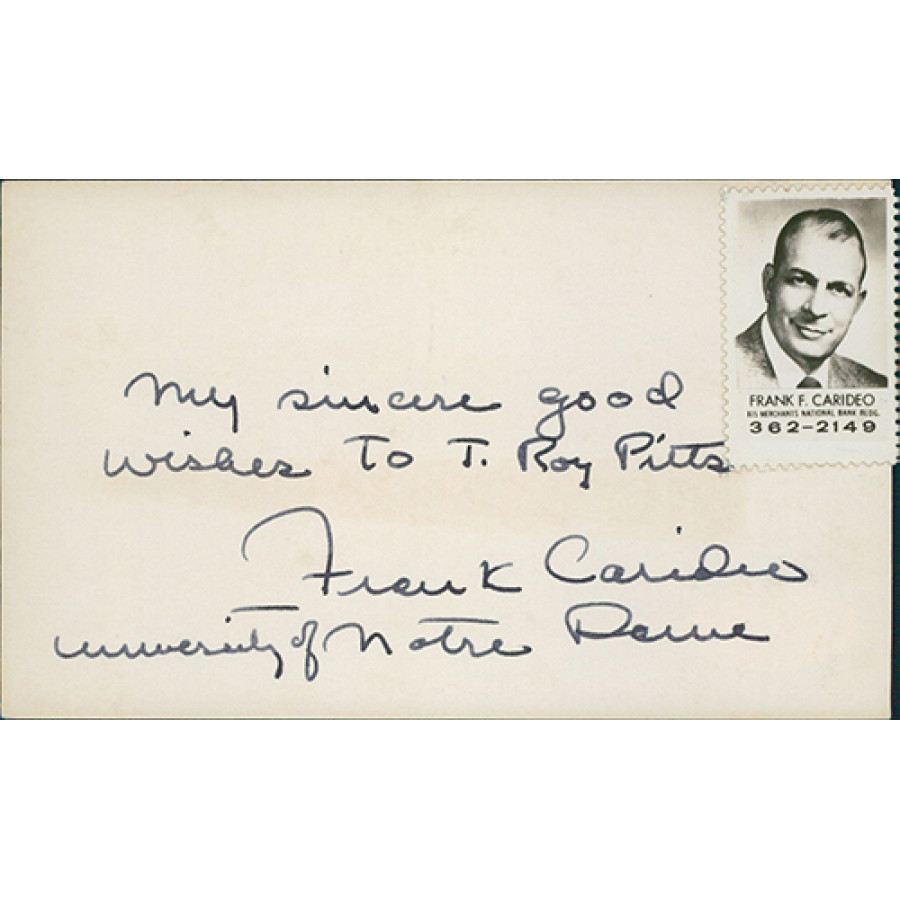 My sincere good
wishes To T. Roy Pitts
Frank Carideo
University of Notre Dame
FRANK F. CARIDEO
815 MERCHANTS NATIONAL BANK BLDG.
362-2149